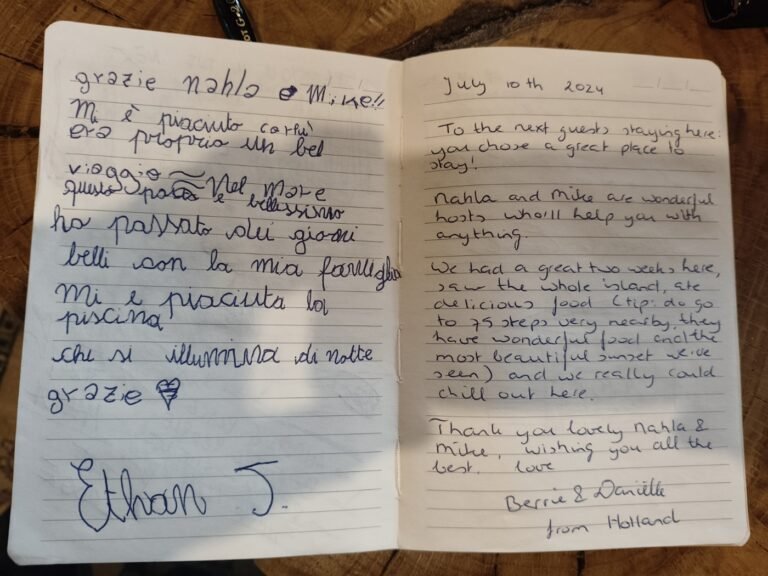 grazie Nahla e Mike!!
Mi è piaciuto
era proprio un bel
viaggio Nel mare
questo posto è bellissimo
ho passato dei giorni
belli con la mia famiglia
Mi è piaciuta la
piscina
che si illumina di notte
grazie
Ethan J.
July 10th 2024
To the next guests staying here:
you chose a great place to
stay!
Nahla and Mike are wonderful
hosts who'll help you with
anything.
We had a great two weeks here,
saw the whole island, ate
delicious food (tip: do go
to 75 steps very nearby, they
have wonderful food and the
most beautiful sunset we've
seen) and we really could
chill out here.
Thank you lovely Nahla &
Mike, wishing you all the
best. love
Berrie & Daniëlle
from Holland